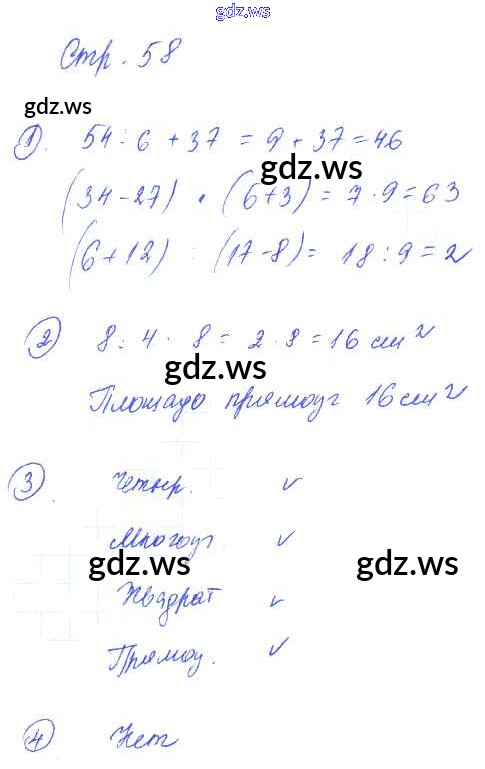 gdz.ws
Стр. 58
gdz.ws
1). 54 : 6 + 37 = 9 + 37 = 46
gdz.ws
(34 - 27) · (6 + 3) = 7 · 9 = 63
(6 + 12) : (17 - 8) = 18 : 9 = 2
2) 8 : 4 · 8 = 2 · 8 = 16 см²
gdz.ws
Площадь прямоуг 16 см²
3). Четыр. ✓
Многоуг. ✓
gdz.ws gdz.ws
Квадрат ✓
Прямоу. ✓
4). Нет
gdz.ws